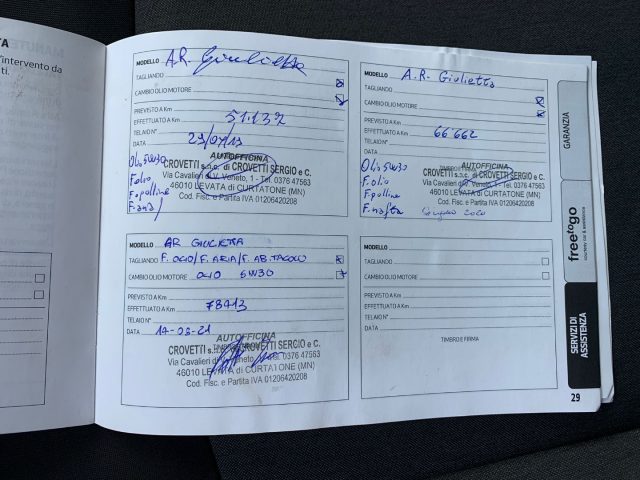 TA
l'intervento da
ti.
MODELLO A.R. Giulietta
TAGLIANDO
CAMBIO OLIO MOTORE
PREVISTO A Km
EFFETTUATO A Km 51.137
TELAIO N°
DATA 23/07/19
Olio 5W30
F.olio
F.polline
AUTOFFICINA
CROVETTI s.n.c. di CROVETTI SERGIO e C.
Via Cavalieri di V. Veneto, 1 - Tel. 0376 47563
46010 LEVATA di CURTATONE (MN)
Cod. Fisc. e Partita IVA 01206420208
MODELLO A.R. Giulietta
TAGLIANDO
CAMBIO OLIO MOTORE
PREVISTO A Km
EFFETTUATO A Km 66.662
TELAIO N°
DATA
Olio 5W30
F.olio
F.polline
F.nafta Giugno 2020
TIMBRO E FIRMA
AUTOFFICINA
CROVETTI s.n.c. di CROVETTI SERGIO e C.
Via Cavalieri di V. Veneto, 1 - Tel. 0376 47563
46010 LEVATA di CURTATONE (MN)
Cod. Fisc. e Partita IVA 01206420208
MODELLO AR GIULIETTA
TAGLIANDO F.OLIO/F.ARIA/F.ABITACOLO
CAMBIO OLIO MOTORE OLIO 5W30
PREVISTO A Km
EFFETTUATO A Km 78413
TELAIO N°
DATA 17-03-21
AUTOFFICINA
CROVETTI s.n.c. di CROVETTI SERGIO e C.
Via Cavalieri di V. Veneto, 1 - Tel. 0376 47563
46010 LEVATA di CURTATONE (MN)
Cod. Fisc. e Partita IVA 01206420208
MODELLO
TAGLIANDO
CAMBIO OLIO MOTORE
PREVISTO A Km
EFFETTUATO A Km
TELAIO N°
DATA
TIMBRO E FIRMA
GARANZIA
freetogo
SERVIZI DI
ASSISTENZA
29